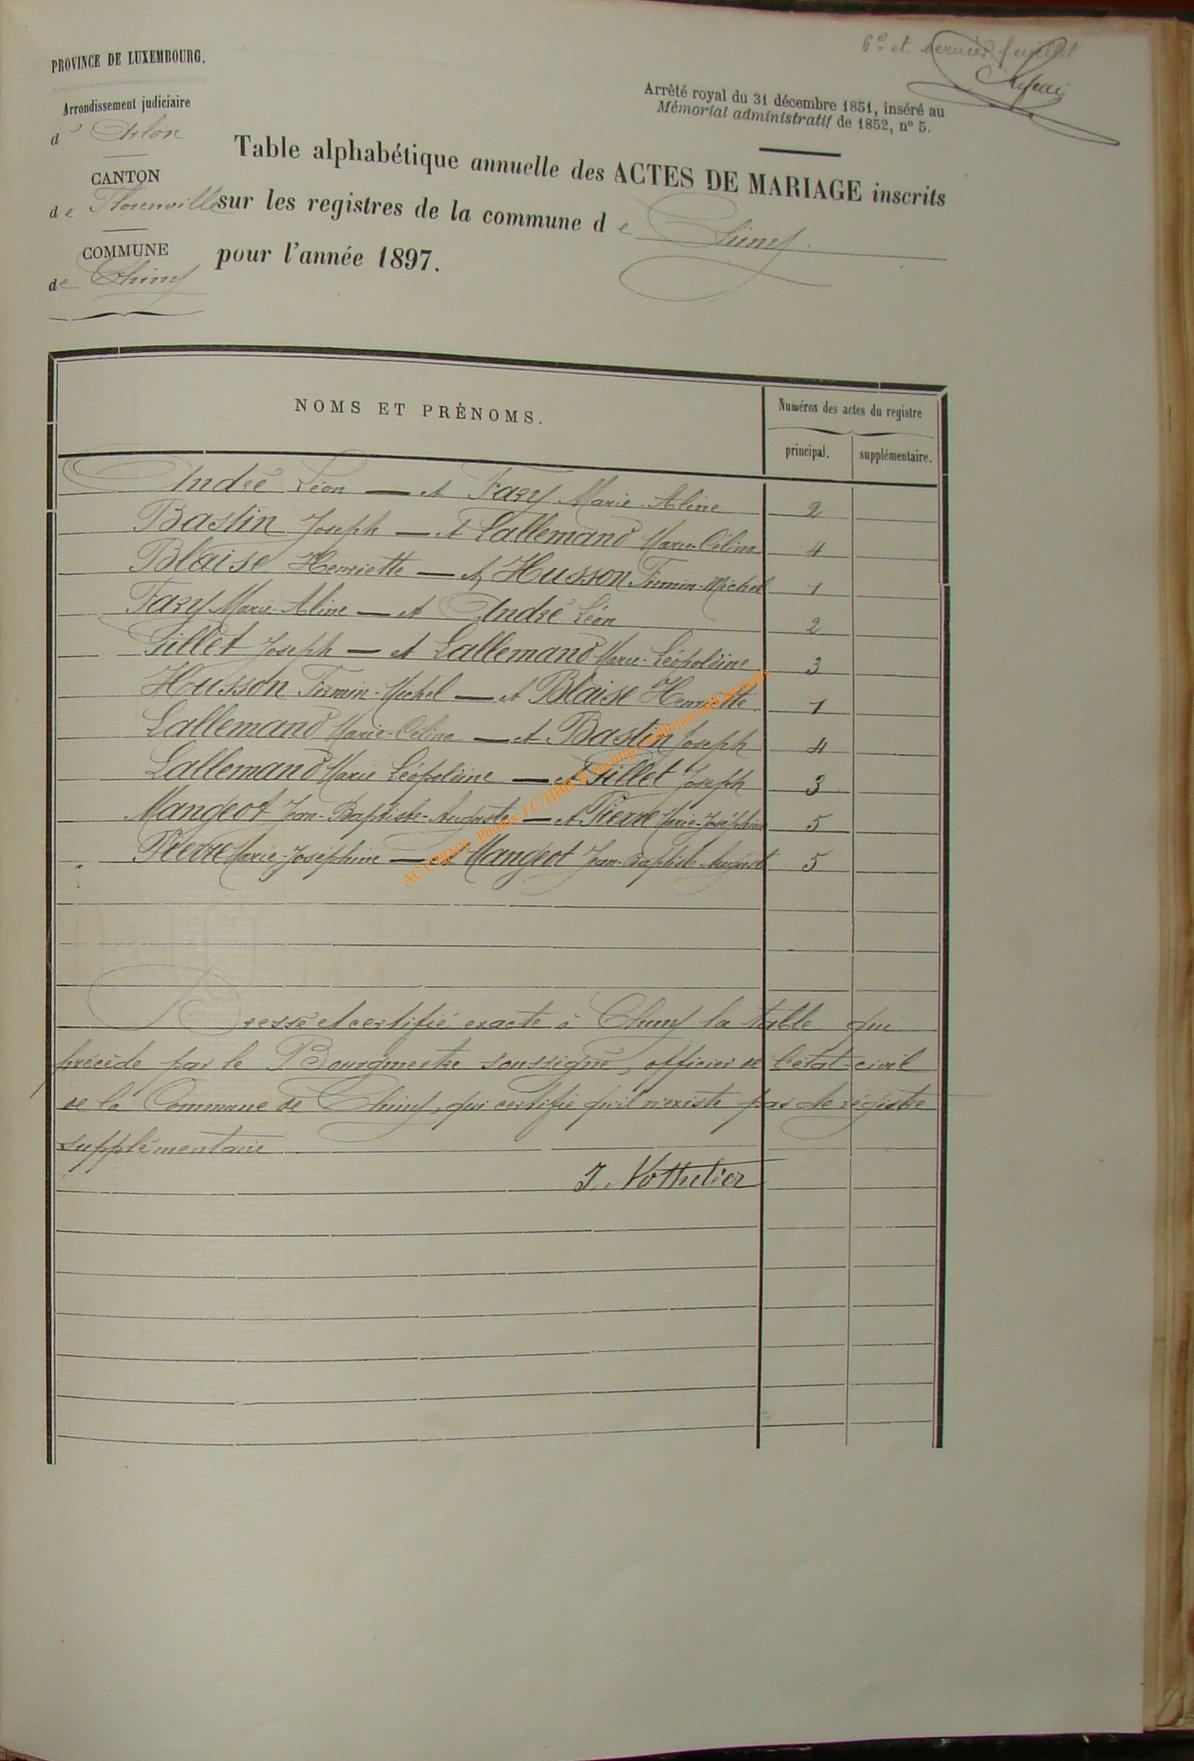 6e et dernier feuillet
PROVINCE DE LUXEMBOURG.
Arrondissement judiciaire
d' Arlon
CANTON
de Florenville
COMMUNE
de Chiny
Arrêté royal du 31 décembre 1851, inséré au
Mémorial administratif de 1852, nº 5.
Table alphabétique annuelle des ACTES DE MARIAGE inscrits
sur les registres de la commune de Chiny.
pour l'année 1897.
NOMS ET PRÉNOMS.
Numéros des actes du registre
principal. supplémentaire.
André Léon — et Fazy Marie-Aline 2
Bastin Joseph — et Lallemand Marie-Célina 4
Blaise Henriette — et Husson Firmin-Michel 1
Fazy Marie-Aline — et André Léon 2
Gillet Joseph — et Lallemand Marie-Léopoldine 3
Husson Firmin-Michel — et Blaise Henriette 1
Lallemand Marie-Célina — et Bastin Joseph 4
Lallemand Marie Léopoldine — et Gillet Joseph 3
Mangeot Jean-Baptiste-Auguste — et Pierre Marie-Joséphine 5
Pierre Marie-Joséphine — et Mangeot Jean-Baptiste-August 5
Dressé et certifié exacte à Chiny la table qui
précède par le Bourgmestre soussigné, officier de l'état-civil
de la Commune de Chiny, qui certifie qu'il n'existe pas de régistre
supplémentaire